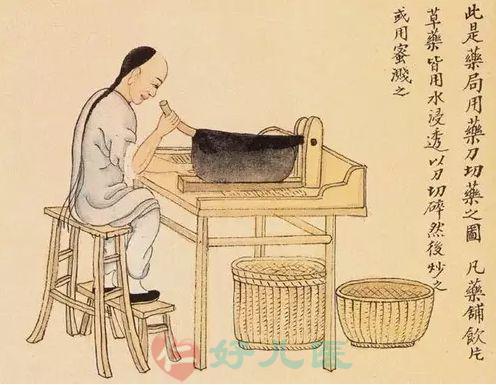 此是藥局用藥刀切藥之圖 凡藥舖飲片
草藥皆用水浸透以刀切碎然後炒之
或用蜜濺之
好儿医